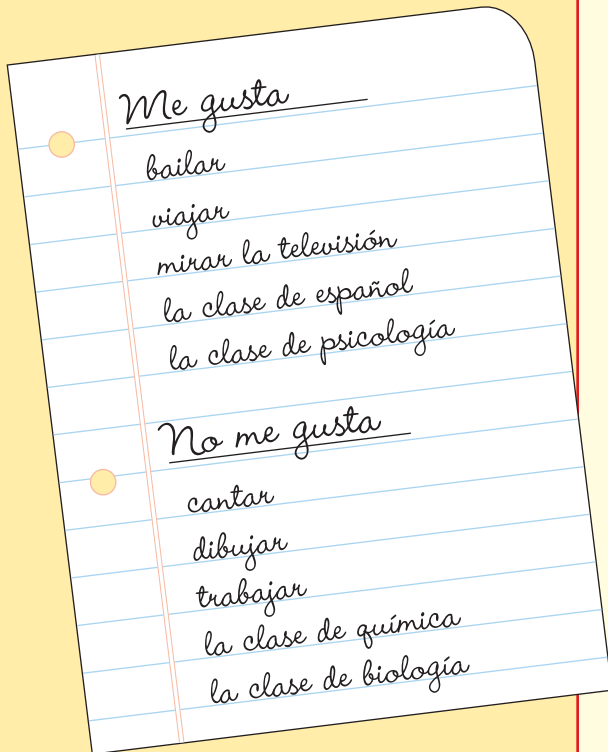 Me gusta
bailar
viajar
mirar la televisión
la clase de español
la clase de psicología
No me gusta
cantar
dibujar
trabajar
la clase de química
la clase de biología